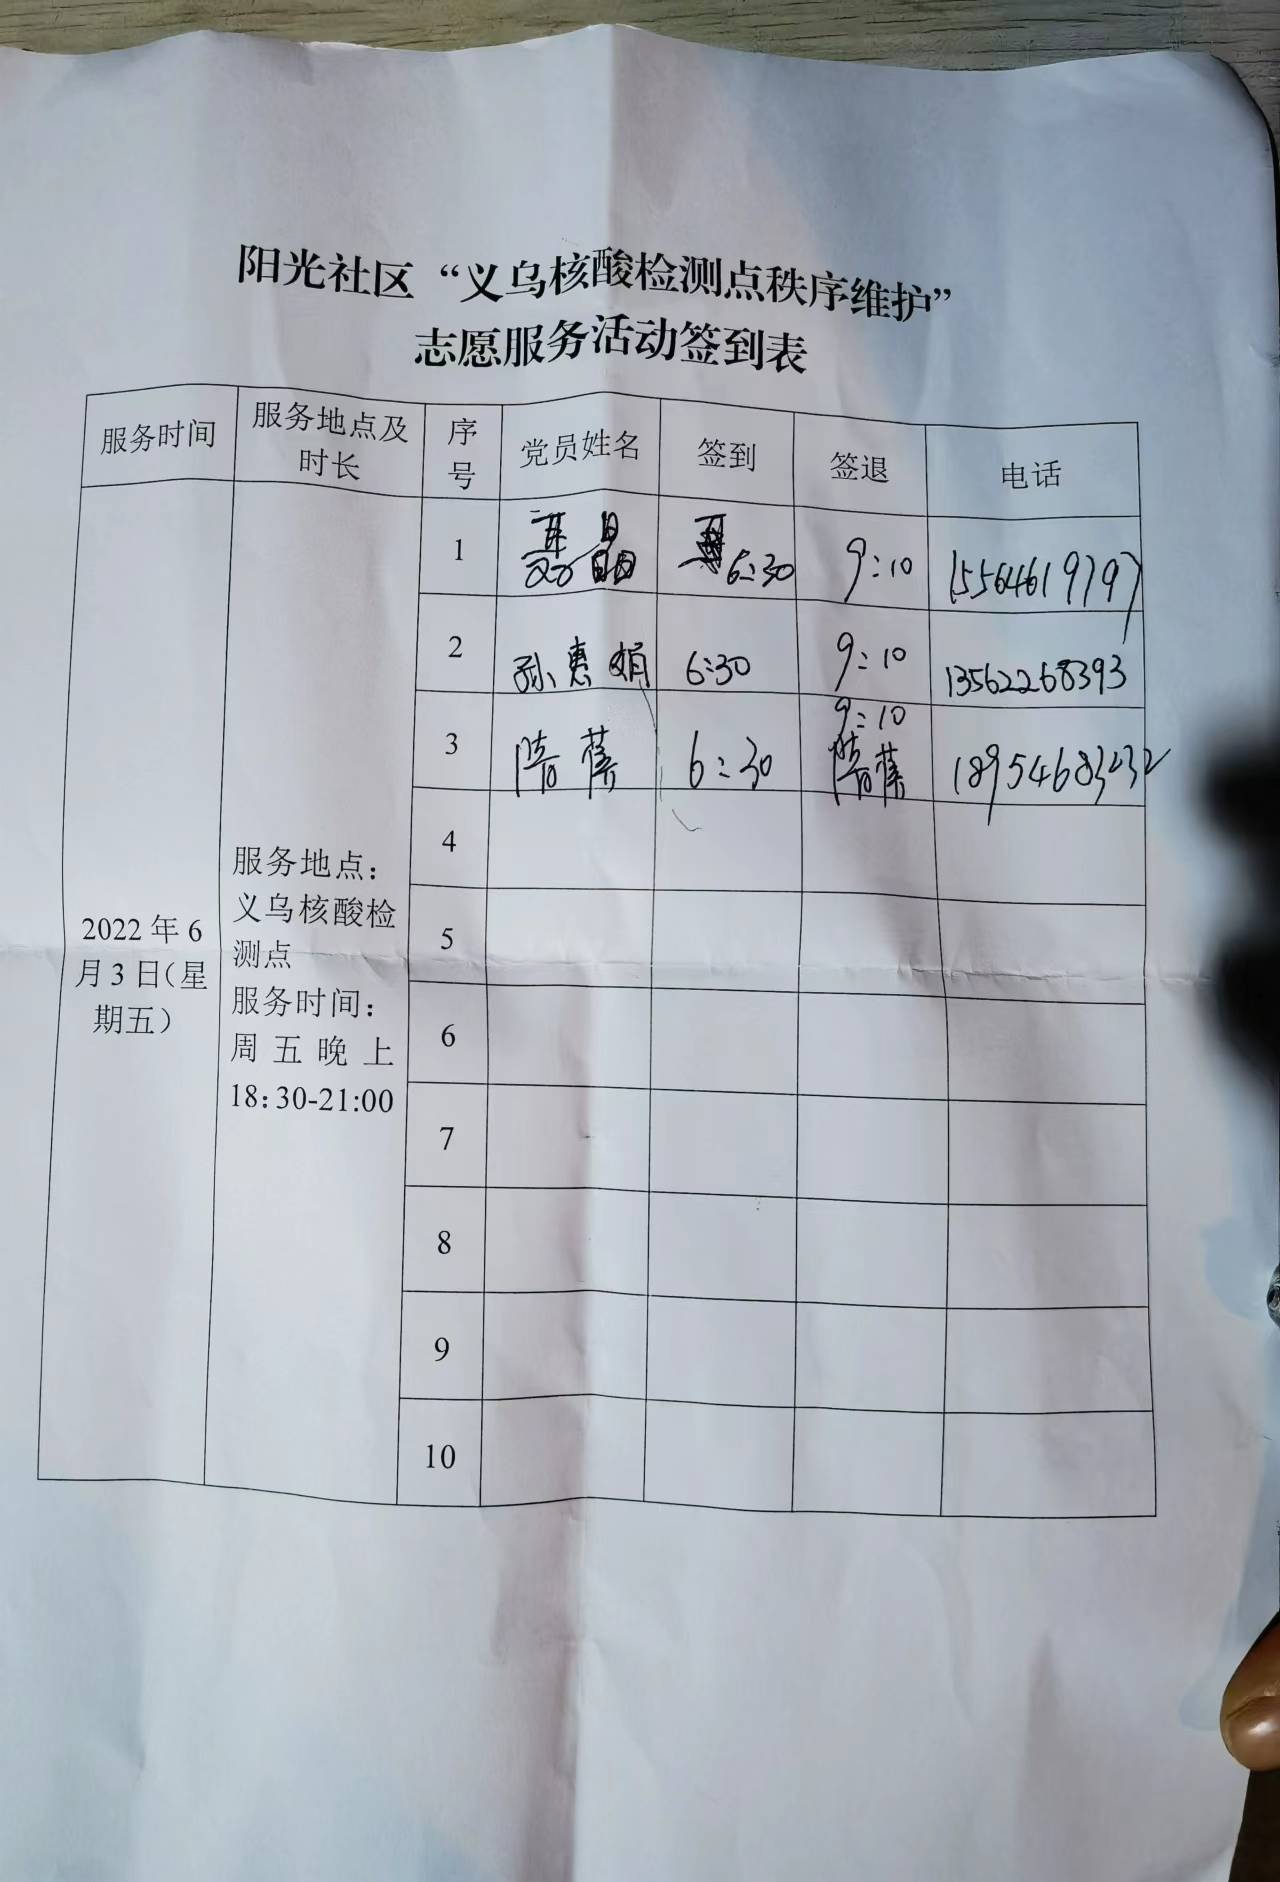 阳光社区“义乌核酸检测点秩序维护”
志愿服务活动签到表
服务时间 服务地点及时长 序号 党员姓名 签到 签退 电话
2022年6月3日(星期五)
服务地点:
义乌核酸检
测点
服务时间:
周五晚上
18:30-21:00
1 聂晶 6:30 9:10 15564619797
2 孙惠娟 6:30 9:10 13562268393
3 隋蓓 6:30 9:10 隋蓓 18954683232
4
5
6
7
8
9
10